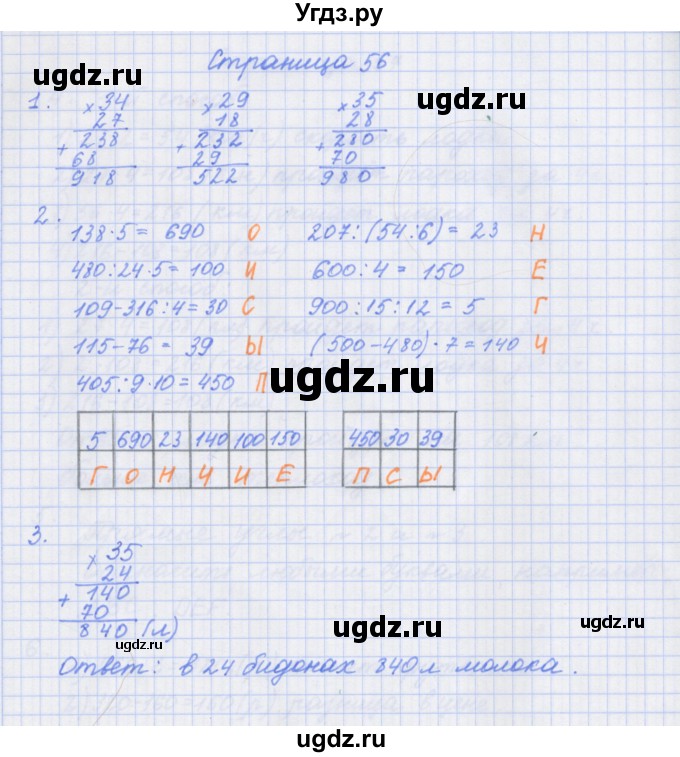 Угдз.ру
Страница 56
ugdz.ru ugdz.ru ugdz.ru
1. × 34 × 29 × 35
27 18 28
+ 238 + 232 + 280
68 29 70
918 522 980
2.
138·5= 690 О 207:(54:6)= 23 Н
480:24·5= 100 И 600:4= 150 Е
109-316:4= 30 С 900:15:12= 5 Г
115-76= 39 Ы (500-480)·7=140 Ч
405:9·10=450 П
ugdz.ru
5 690 23 140 100 150 450 30 39
Г О Н Ч И Е П С Ы
ugdz.ru ugdz.ru
3.
× 35
24
+ 140
70
840 (л)
ugdz.ru ugdz.ru
Ответ: в 24 бидонах 840 л молока.
ugdz.ru